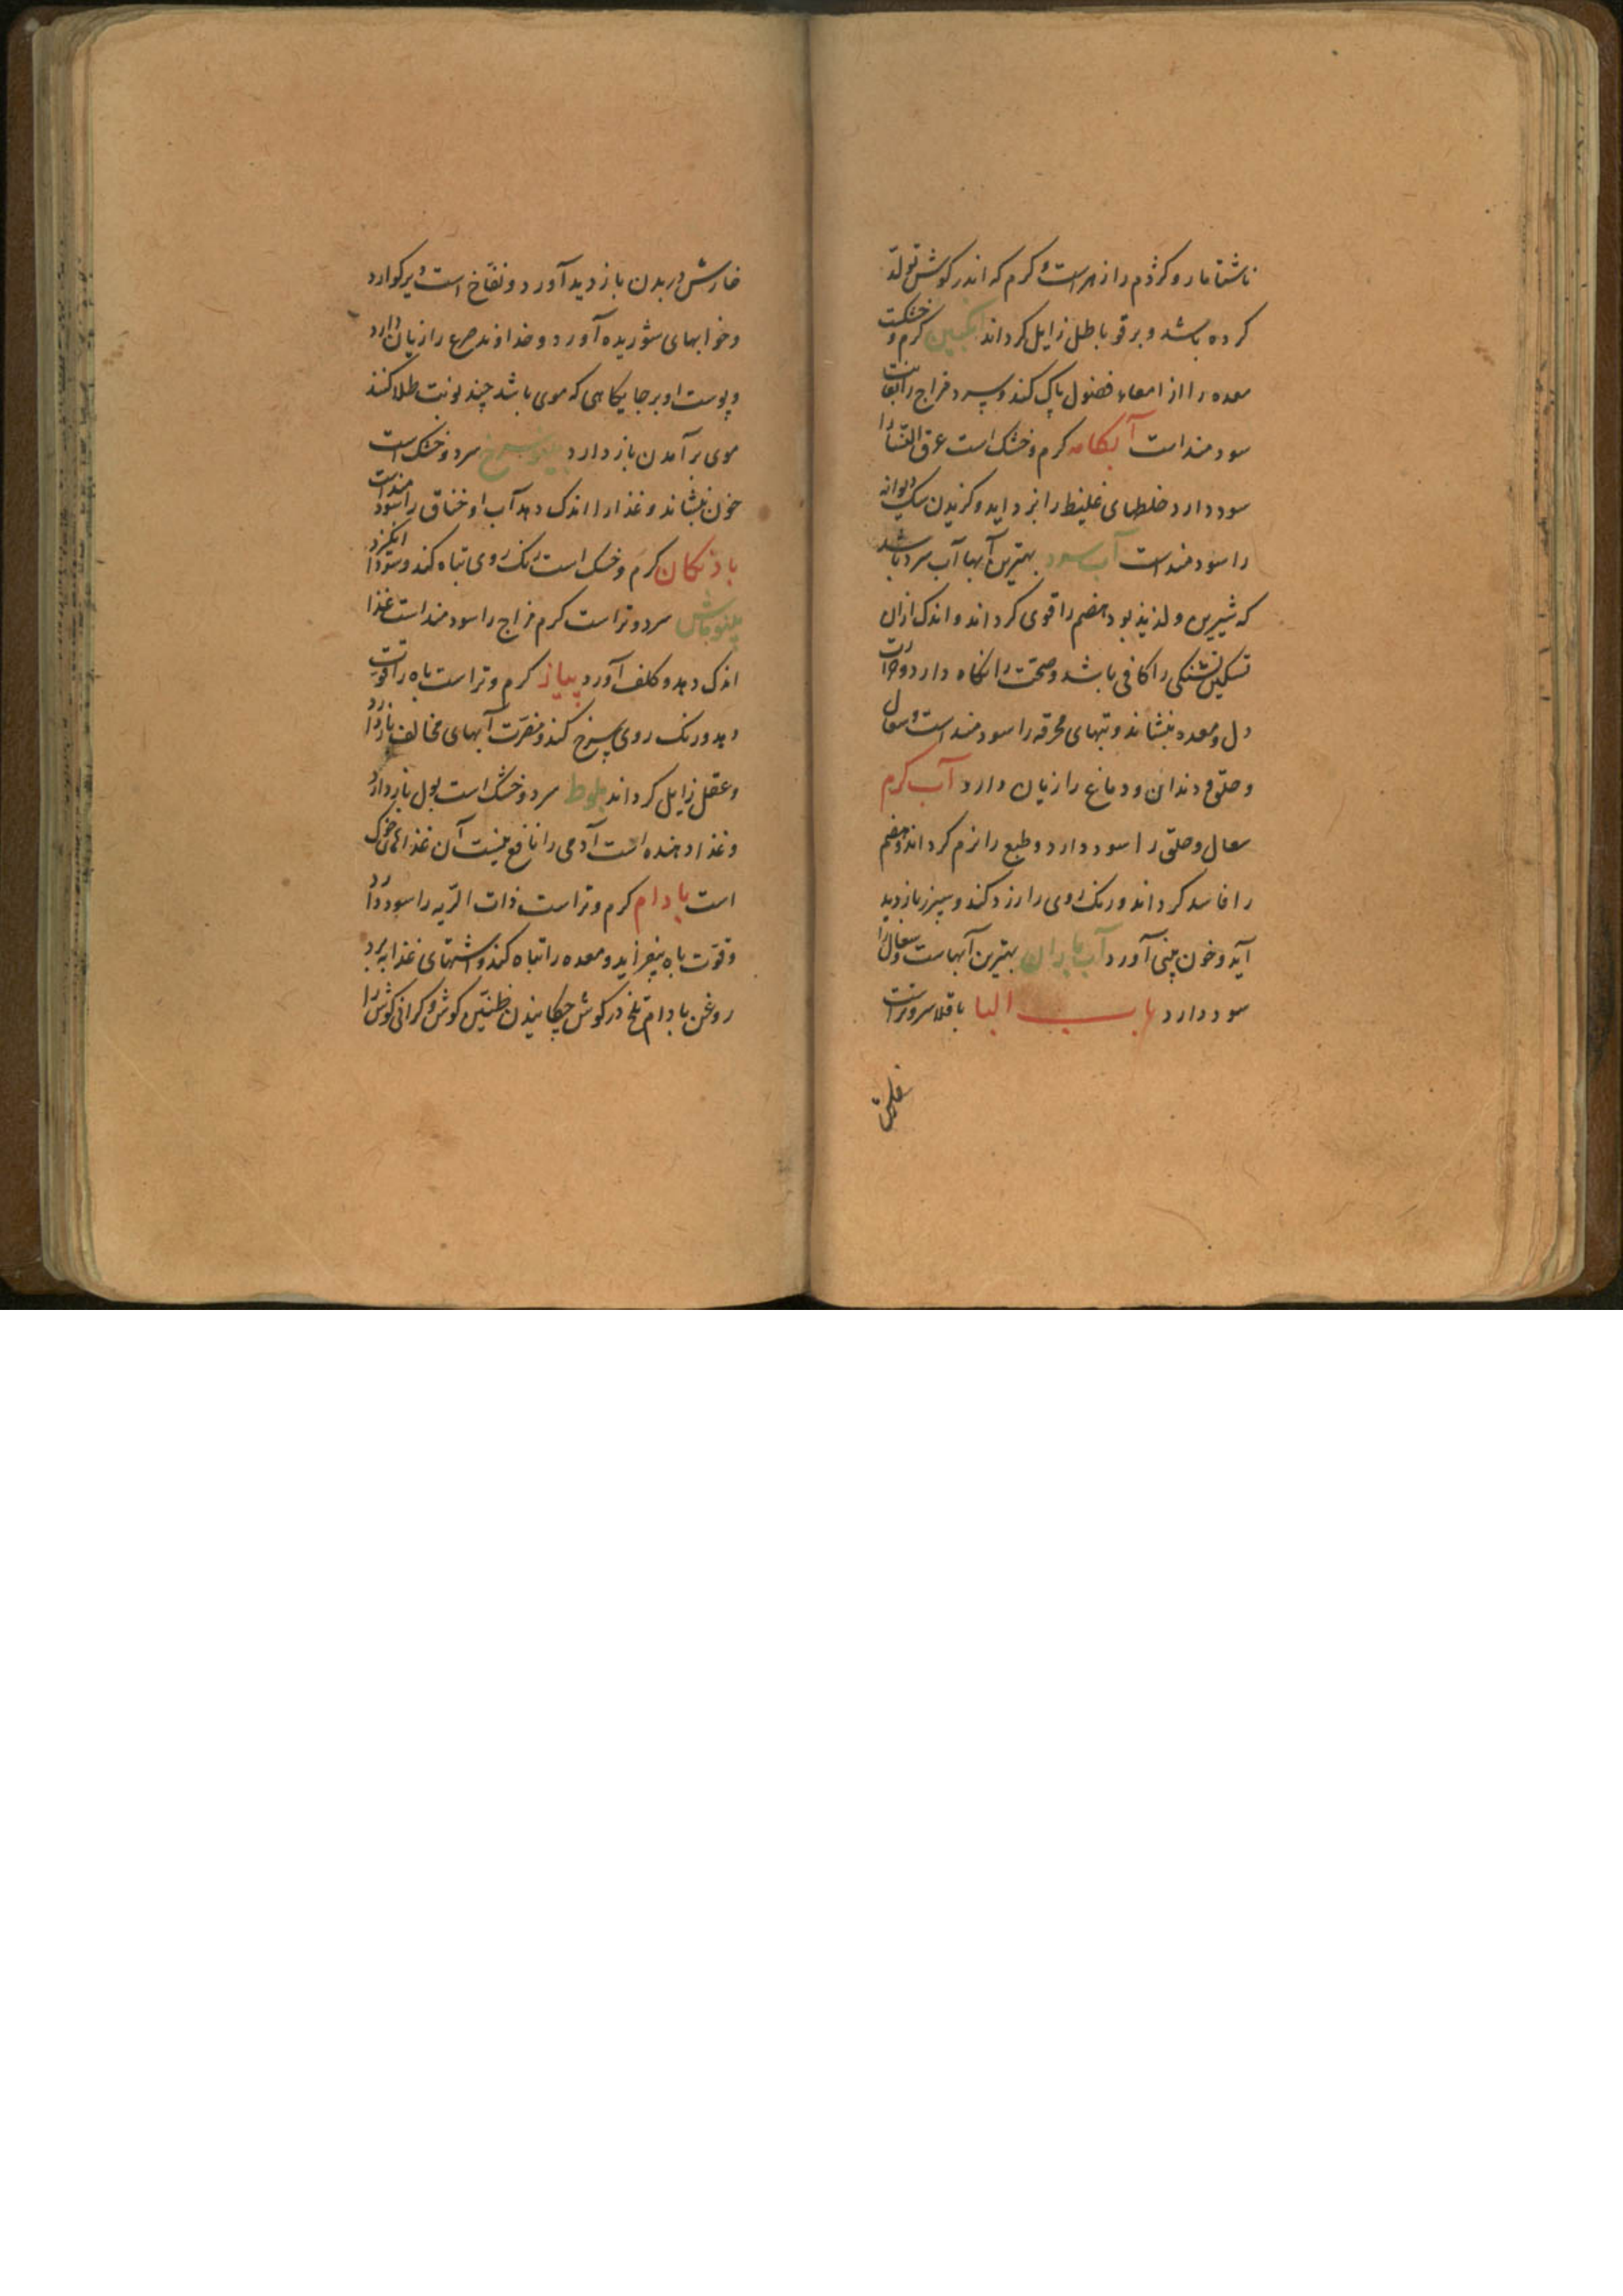 ناشتا مار و کژدم را زهر است و کرم که اندر کوش تولد
کرده باشد و برقو باطل زایل کرداند انکبین کرم و خشکست
معده را از امعاء فضول پاک کند و سرد مزاج را بغایت
سودمند است آبکامه کرم و خشک است عرق النسا را
سود دارد خلطهای غلیظ را بزداید و کزیدن سک دیوانه
را سودمند است آب سرد بهترین آبها آب سرد باشد
که شیرین و لذیذ بود هضم را قوی کرداند و اندک ازان
تسکین تشنکی را کافی باشد و صحت را نکاه دارد و حرارت
دل و معده بنشاند و تبهای محرقه را سودمند است و سعال
و حلق و دندان و دماغ را زیان دارد آب کرم
سعال و حلق را سود دارد و طبع را نرم کرداند و هضم
را فاسد کرداند و رنک روی را زرد کند و سپرز بازدید
آید و خون بینی آورد آب باران بهترین آبهاست و سعال را
سود دارد باب البا باقلا سرد و تر است
خارش
خارش در بدن بازدید آورد و نفاخ است و دیر کوارد
و خوابهای شوریده آورد و خداوند صرع را زیان دارد
و پوست او بر جایکاهی که موی باشد چند نوبت طلا کنند
موی برآمدن باز دارد سرخ سرد و خشک است
خون بنشاند و غذا را اندک دهد آب او خناق را سودمند است
بادنکان کرم و خشک است رنک روی تباه کند و سودا انکیزد
سرد و تر است کرم مزاج را سودمند است غذا
اندک دهد و کلف آورد پیاز کرم و تر است باه را قوت
دهد و رنک روی سرخ کند و مضرت آبهای مخالف باز دارد
و عقل زایل کرداند بلوط سرد و خشک است بول باز دارد
و غذا دهنده است آدمی را نافع نیست آن غذاهای خوک
است بادام کرم و تر است ذات الریه را سود دارد
و قوت باه بیفزاید و معده را تباه کند و اشتهای غذا ببرد
روغن بادام تلخ در کوش چکانیدن طنین کوش و کرانی کوش را